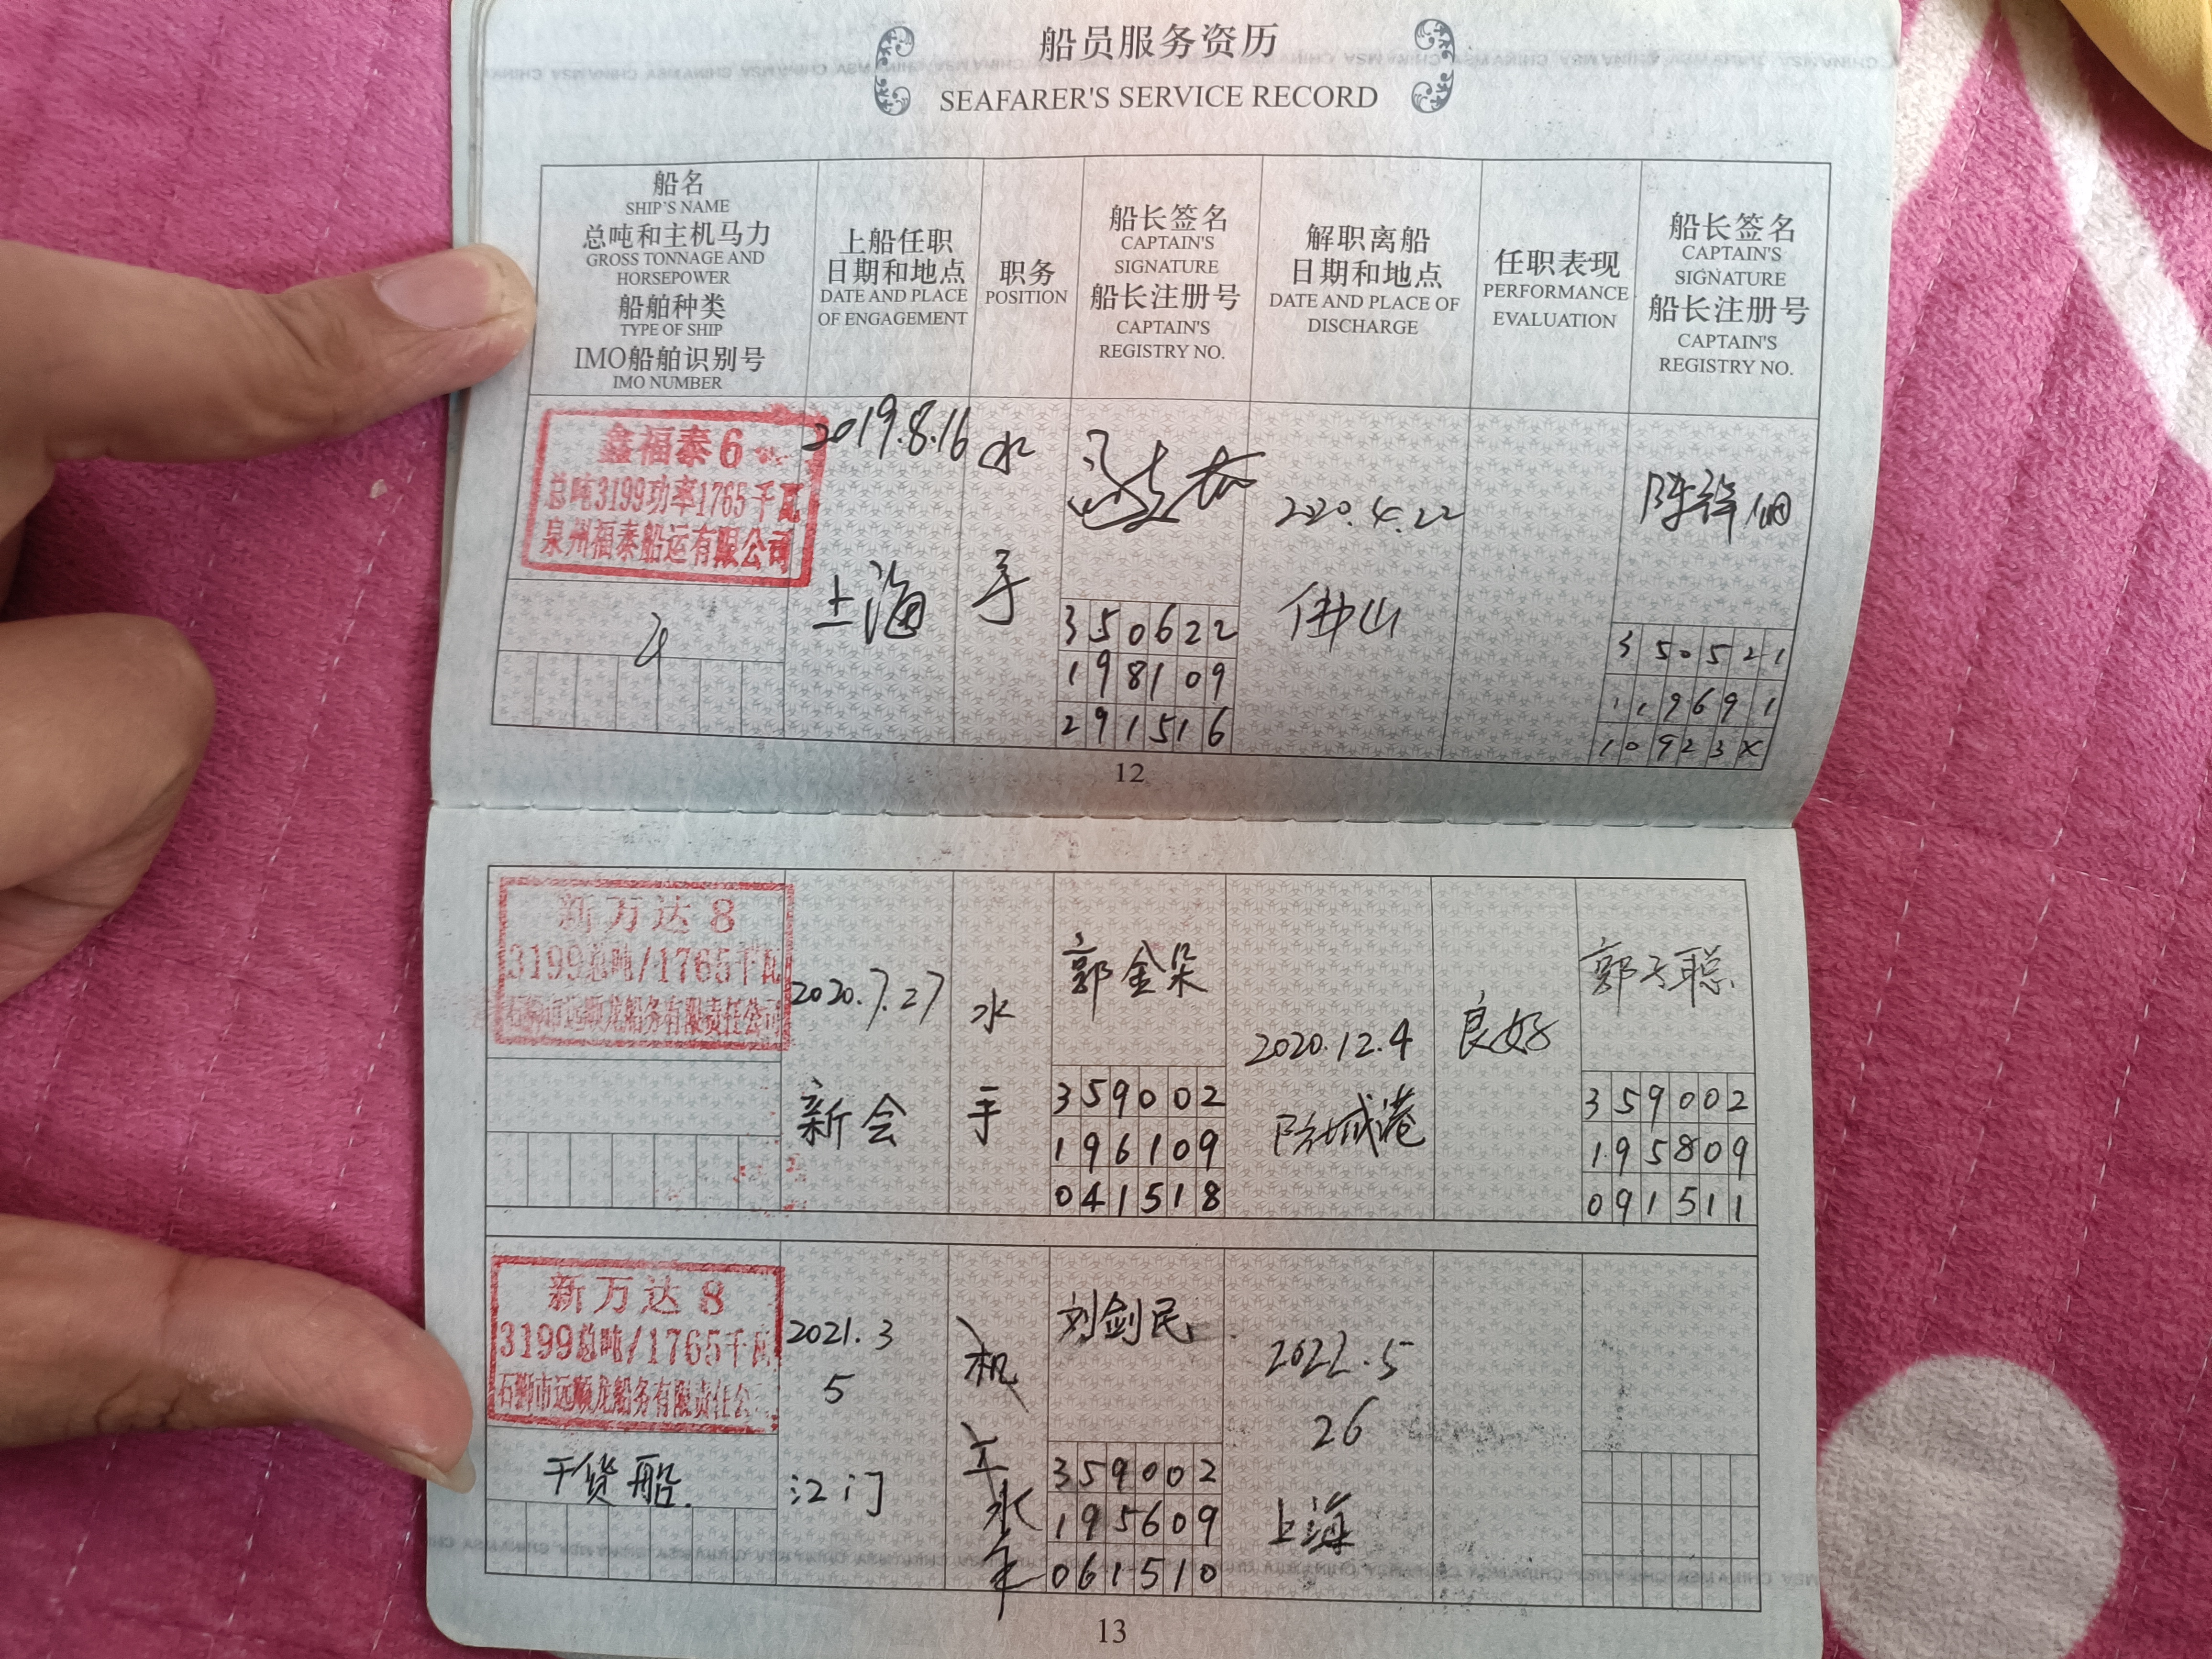 船员服务资历
SEAFARER'S SERVICE RECORD
船名
SHIP'S NAME
总吨和主机马力
GROSS TONNAGE AND
HORSEPOWER
船舶种类
TYPE OF SHIP
IMO船舶识别号
IMO NUMBER
上船任职
日期和地点
DATE AND PLACE
OF ENGAGEMENT
职务
POSITION
船长签名
CAPTAIN'S
SIGNATURE
船长注册号
CAPTAIN'S
REGISTRY NO.
解职离船
日期和地点
DATE AND PLACE OF
DISCHARGE
任职表现
PERFORMANCE
EVALUATION
船长签名
CAPTAIN'S
SIGNATURE
船长注册号
CAPTAIN'S
REGISTRY NO.
鑫福泰6
总吨3199功率1765千瓦
泉州福泰船运有限公司
2019.8.16
上海
水
手
350622
198109
291516
2020.4.22
佛山
350521
119691
10923X
12
新万达8
3199总吨/1765千瓦
石狮市远顺龙船务有限责任公司
2020.7.27
新会
水
手
郭金朵
359002
196109
041518
2020.12.4
防城港
良好
郭子聪
359002
195809
091511
新万达8
3199总吨/1765千瓦
石狮市远顺龙船务有限责任公
干货船.
2021.3
5
江门
机
工
水
手
刘剑民
359002
195609
061510
2022.5
26
上海
13